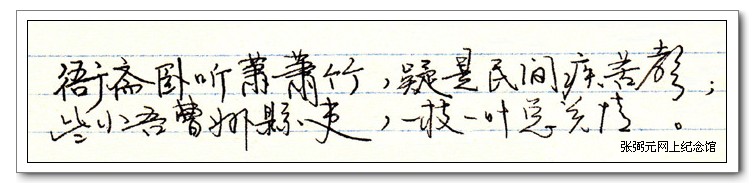 衙斋卧听萧萧竹，疑是民间疾苦声；
些小吾曹州縣吏，一枝一叶总关情。
张弼元网上纪念馆